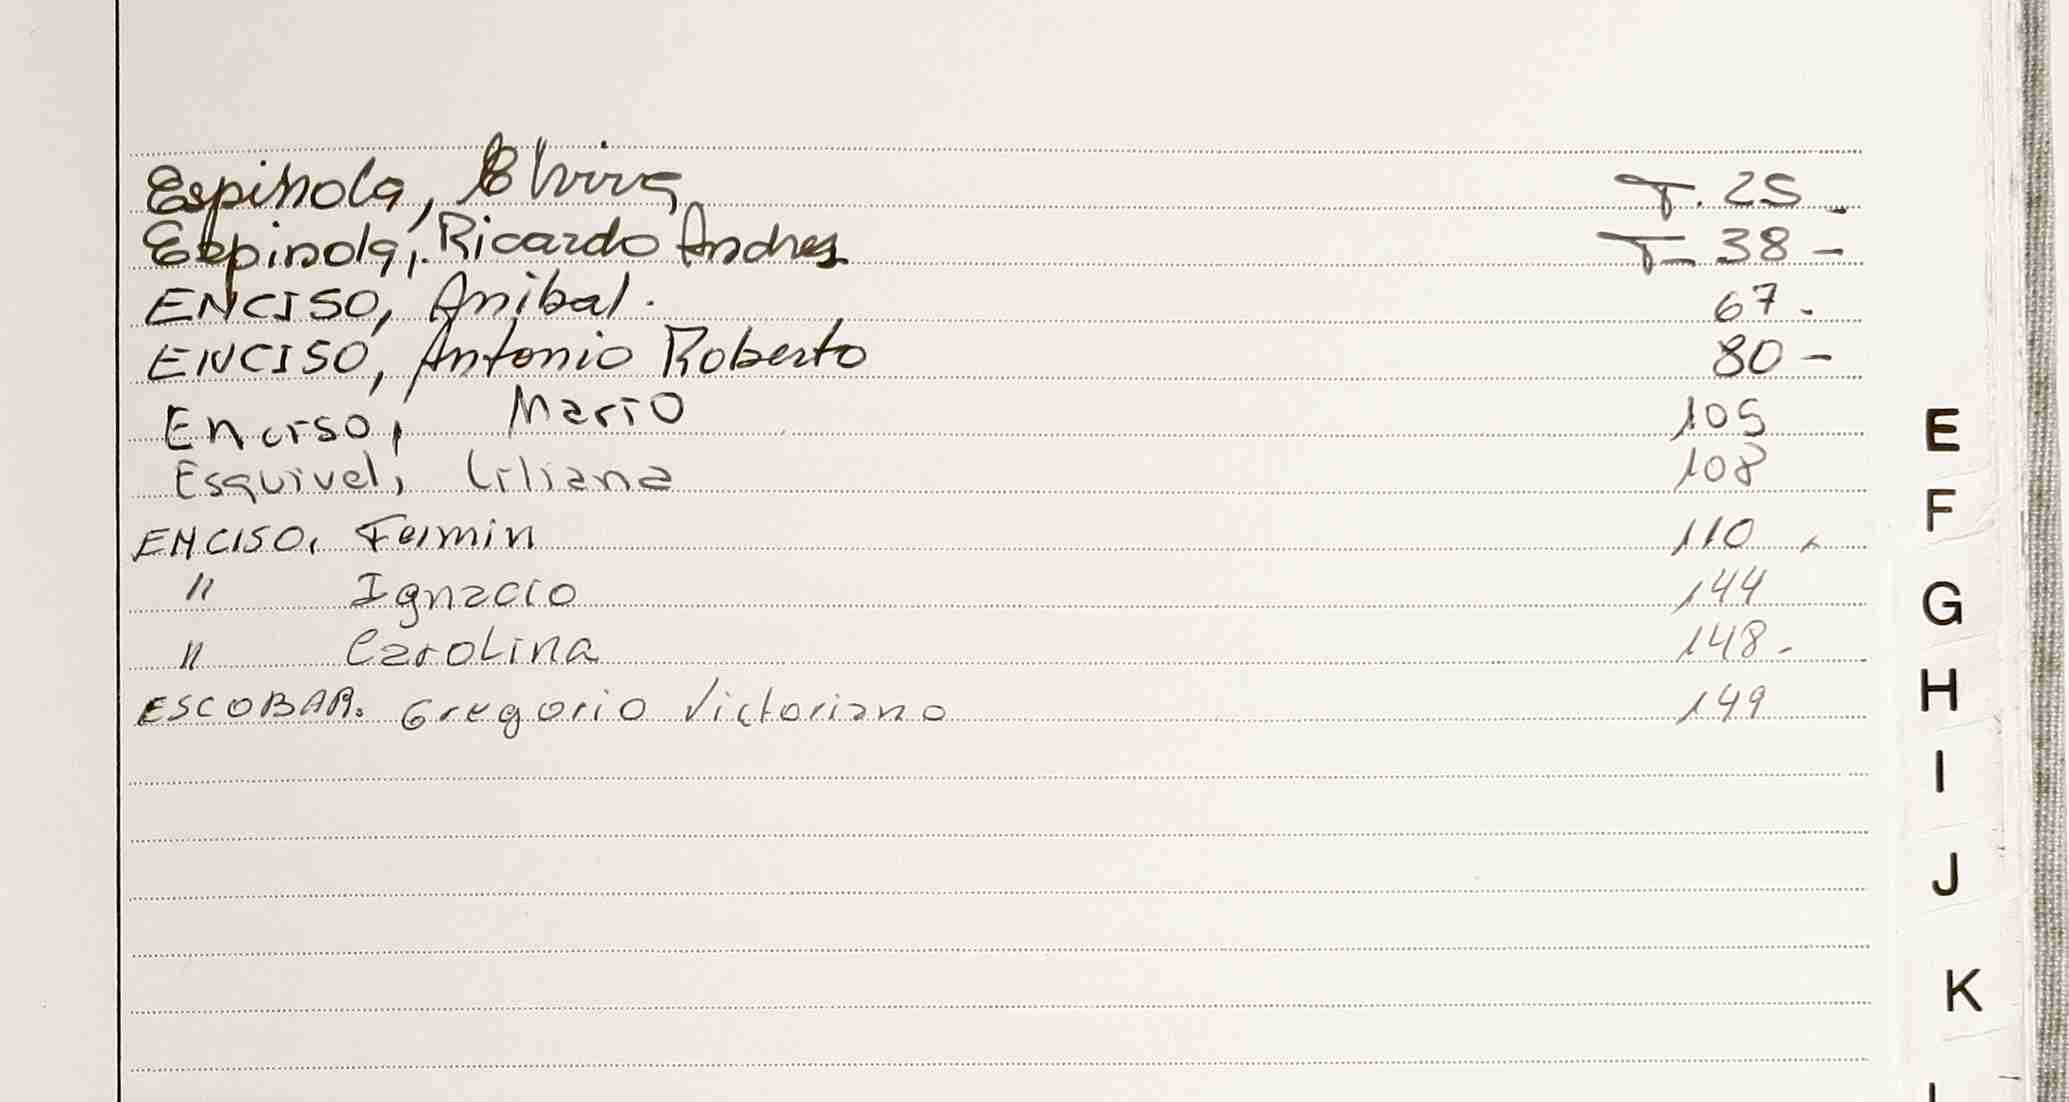 Espinola, Elvira T. 25 -
Espinola, Ricardo Andres T- 38 -
ENCISO, Anibal. 67 -
ENCISO, Antonio Roberto 80 -
Enciso, Mario 105
Esquivel, Liliana 108
ENCISO, Fermin 110 -
" Ignacio 144
" Carolina 148 -
ESCOBAR. Gregorio Victoriano 149
E
F
G
H
I
J
K